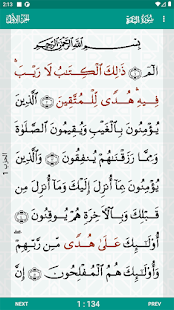 2:13
الجزء الأول
سورة البقرة
بِسْمِ ٱللَّهِ ٱلرَّحْمَٰنِ ٱلرَّحِيمِ
الٓمٓ ١ ذَٰلِكَ ٱلْكِتَٰبُ لَا رَيْبَۛ
فِيهِۛ هُدًى لِّلْمُتَّقِينَ ٢ ٱلَّذِينَ
يُؤْمِنُونَ بِٱلْغَيْبِ وَيُقِيمُونَ ٱلصَّلَوٰةَ
وَمِمَّا رَزَقْنَٰهُمْ يُنفِقُونَ ٣ وَٱلَّذِينَ
يُؤْمِنُونَ بِمَآ أُنزِلَ إِلَيْكَ وَمَآ أُنزِلَ مِن
قَبْلِكَ وَبِٱلْأَخِرَةِ هُمْ يُوقِنُونَ ٤
أُو۟لَٰٓئِكَ عَلَىٰ هُدًى مِّن رَّبِّهِمْۖ
وَأُو۟لَٰٓئِكَ هُمُ ٱلْمُفْلِحُونَ ٥ إِنَّ
الحزب 1
NEXT
1 : 134
PREV